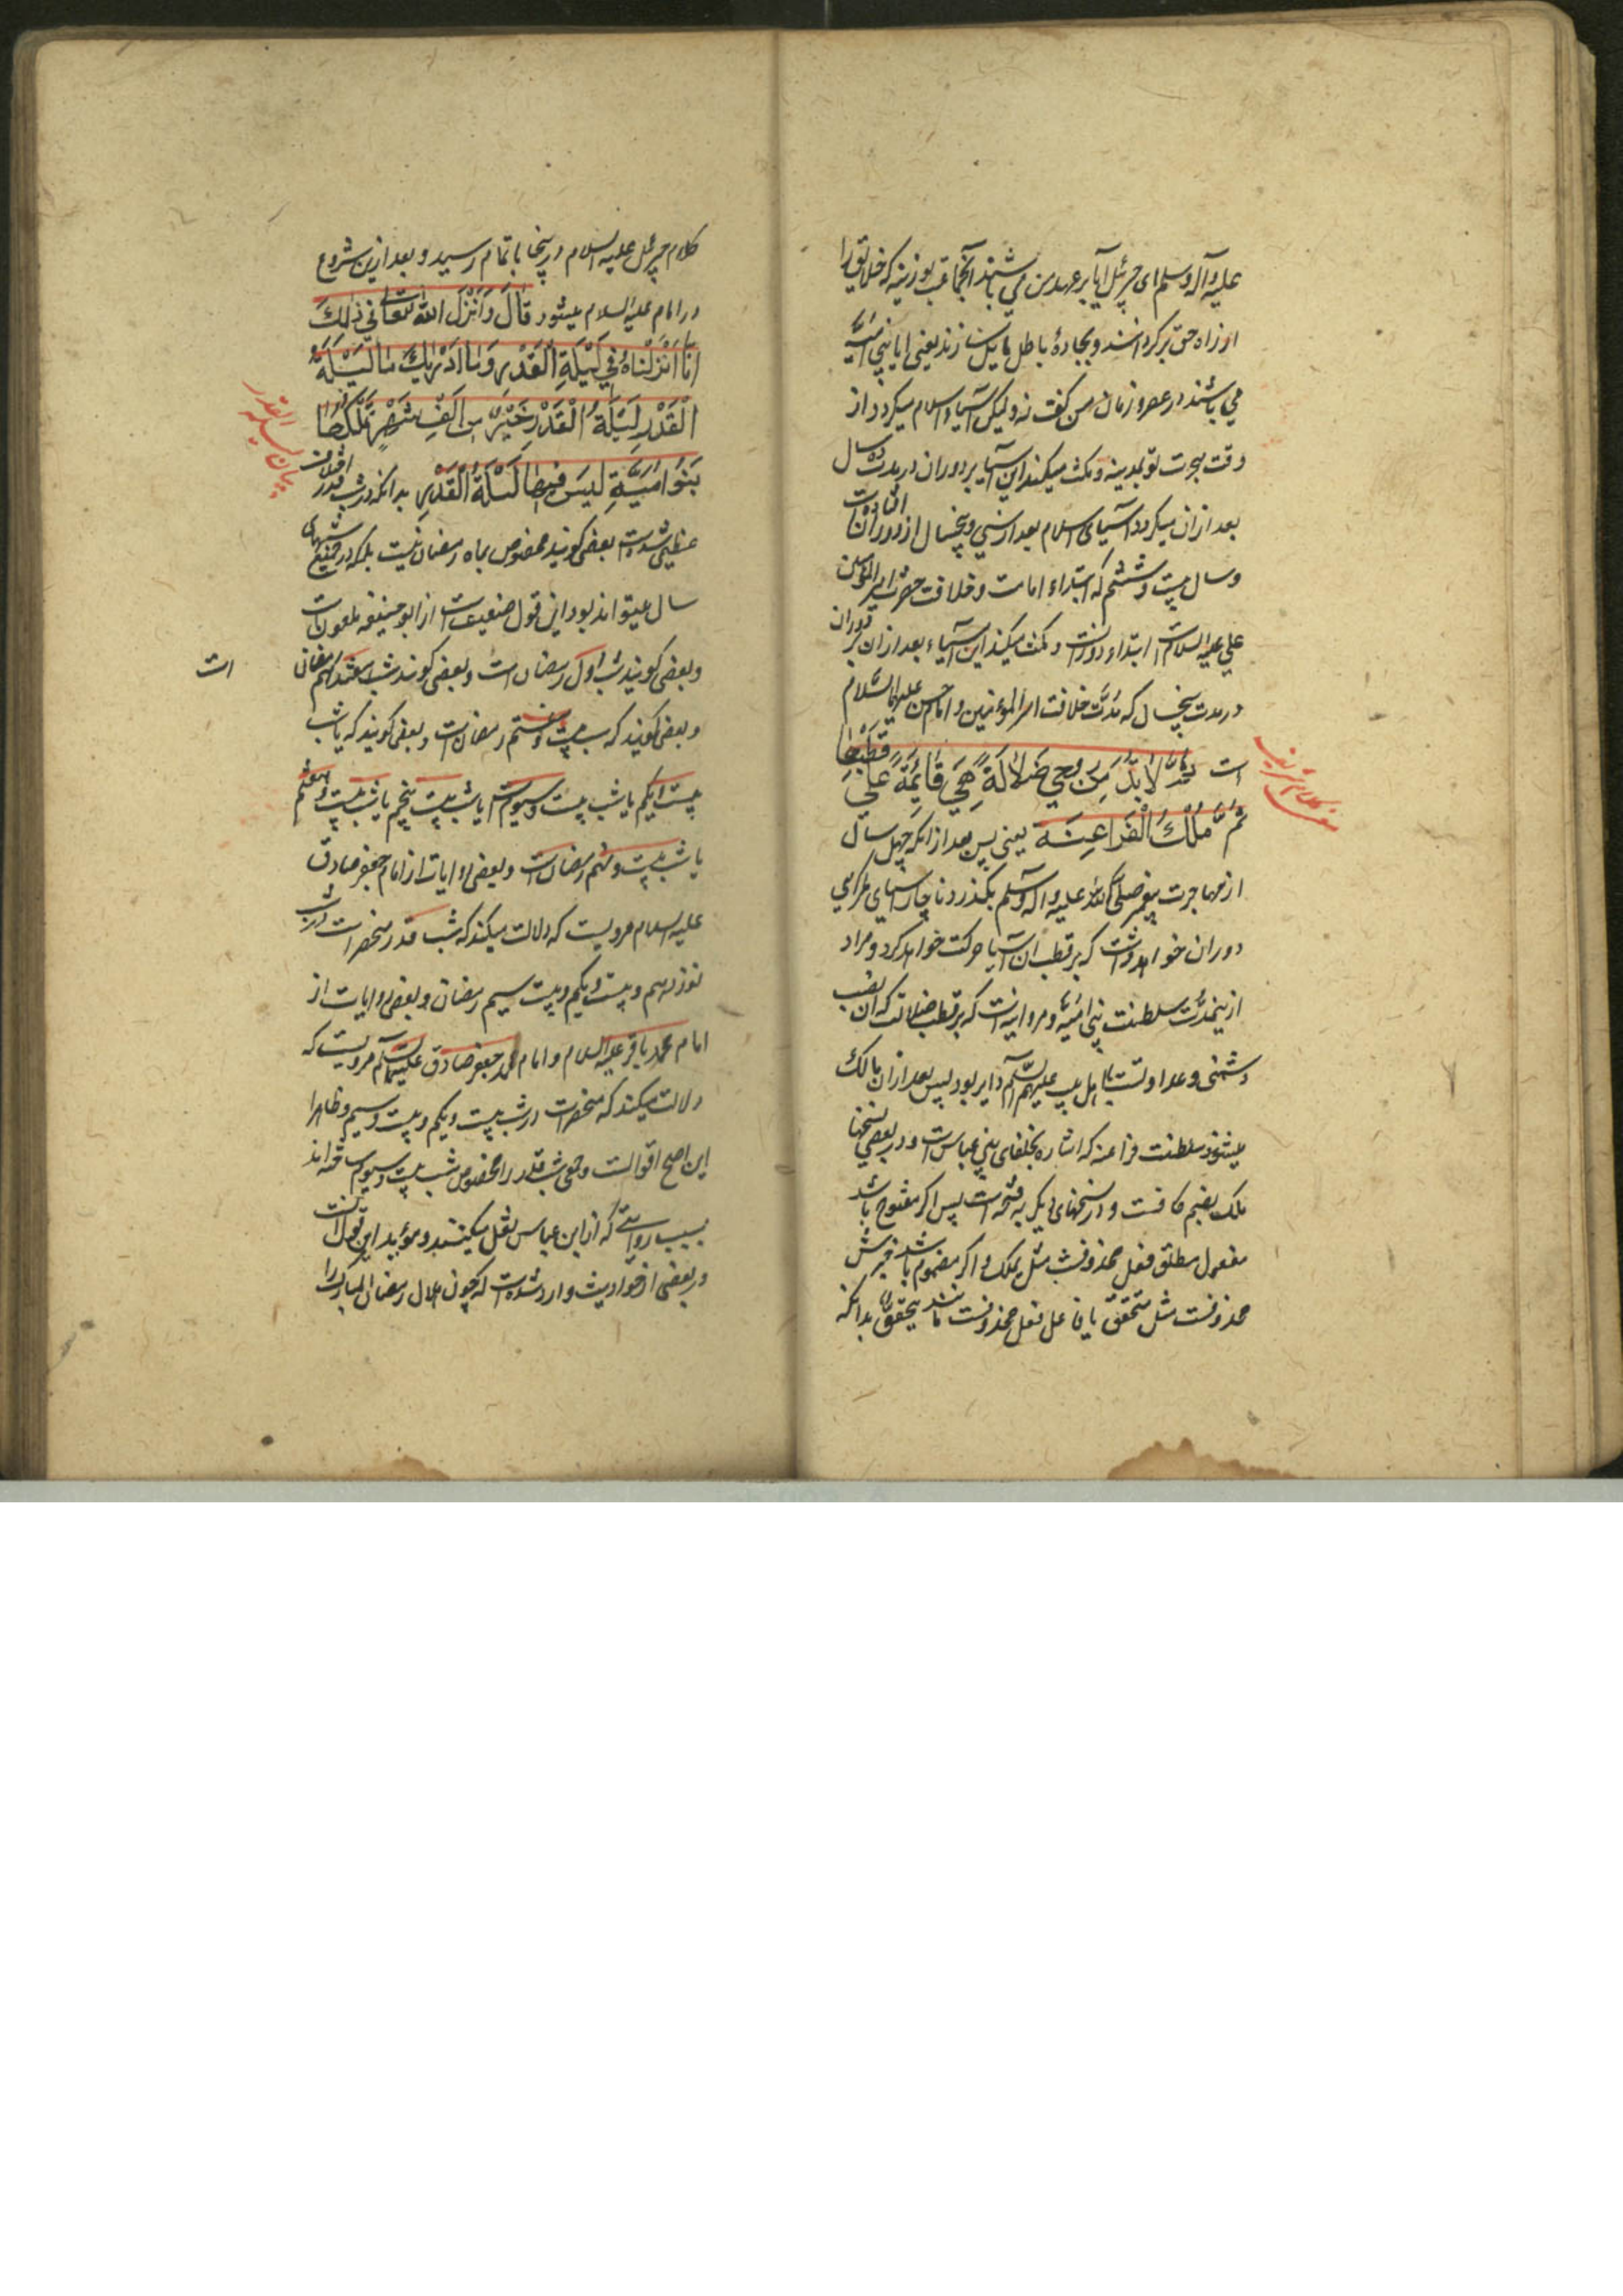 علیه وآله وسلم ای جبرئیل آیا بر عهد من می باشند آنجماعت بوزینه که خلایق را
از راه حق برگردانند و بجادهٔ باطل مایل سازند یعنی ایا بنی امیّه
می باشند در عصر و زمان من گفت نه ولیکن آسیاء اسلام میگردد از
وقت هجرت تو بمدینه و مکث میکند این آسیا بر دوران در مدت ده سال
بعد ازان میگردد آسیای اسلام بعد از سی و پنجسال از دوران افتاده است
و سال بیست و ششم که ابتداء امامت و خلافت حضرت امیر المؤمنین
علی علیه السلام است ابتداء دورانست و مکث میکند این آسیاء بعد ازان بر دوران
در مدت پنجسال که مدّت خلافت امیر المؤمنین و امام حسن علیهما السّلام
است ثُمَّ لَابُدَّ مِن رَحَی ضَلَالَةٍ هِیَ قَائِمَةٌ عَلَی قُطْبِهَا
ثُمَّ مُلْكُ الْفَرَاعِنَةِ یعنی پس بعد از انکه چهل سال
از مهاجرت پیغمبر صلّی الله علیه واله وسلم بگذرد ناچار آسیای گمراهی
دوران خواهد داشت که بر قطب ان آسیا حرکت خواهد کرد و مراد
ازینمدّت سلطنت بنی امیّه و مروانیه است که بر قطب ضلالت که ان نصب
دشمنی و عداوتست با اهل بیت علیهم السّلام دایر بود پس بعد ازان مالک
میشود سلطنت فراعنه که اشاره بخلفای بنی عباس است و در بعضی نسخها
ملک بضم کافست و در نسخهای دیگر به فتحه است پس اگر مفتوح باشد
مفعول مطلق فعل محذوفست مثل یملک و اگر مضموم باشد خبرش
محذوفست مثل متحقق یا فاعل فعل محذوفست مانند یتحقق بدانکه
کلام جبرئیل علیه السلام در ینجا باتمام رسید و بعد ازین شروع
در امام علیه السلام میشود قَالَ وَاَنْزَلَ اللهُ تَعَالَی فِی ذٰلِكَ
اِنَّا اَنْزَلْنَاهُ فِی لَیْلَةِ الْقَدْرِ وَمَا اَدْرٰیكَ مَا لَیْلَةُ
الْقَدْرِ لَیْلَةُ الْقَدْرِ خَیْرٌ مِنْ اَلْفِ شَهْرٍ تَمْلِكُهَا
بیان لیلة القدر
بَنُو اُمَیَّةَ لَیْسَ فِیهَا لَیْلَةُ الْقَدْرِ بدانکه در شب قدر اختلاف
عظیمی شده است بعضی گویند مخصوص بماه رمضان نیست بلکه در جمیع شبهای
سال میتواند بود این قول ضعیف است از ابو حنیفه ملعون است
و بعضی گویند شب اول رمضان است و بعضی گویند شب هفتدهم رمضان است
و بعضی گویند که شب بیست و هفتم رمضان است و بعضی گویند که یا شب
بیست و یکم یا شب بیست و سیوم است یا شب بیست و پنجم یا شب بیست و هفتم
یا شب بیست و نهم رمضان است و بعضی روایات از امام جعفر صادق
علیه السلام مرویست که دلالت میکند که شب قدر منحصر است در شب
نوزدهم و بیست و یکم و بیست و سیم رمضان و بعضی روایات از
امام محمد باقر علیه السلام و امام جعفر صادق علیه السلام مرویست که
دلالت میکند که منحصر است در شب بیست و یکم و بیست و سیم و ظاهرا
این اصح اقوالست و جمعی شب قدر را مخصوص شب بیست و سیوم ساخته اند
بسبب روایتی که از ابن عباس نقل میکنند و مؤید این قول است
در بعضی از حوادیث وارد شده است که چون هلال رمضان المبارک را